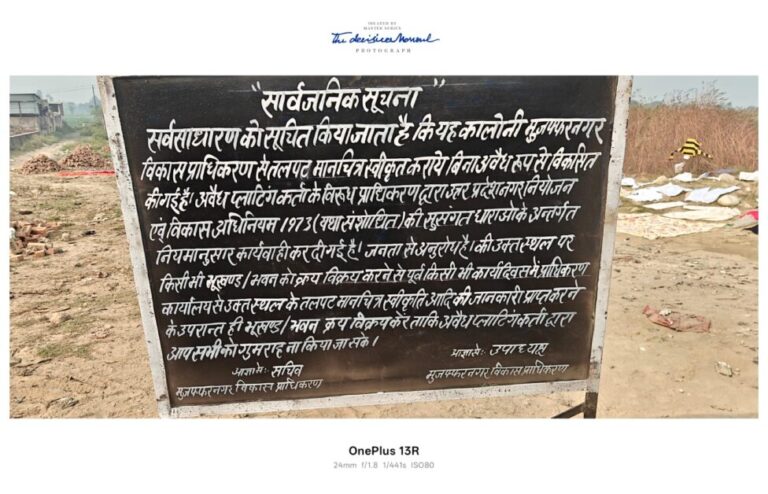 CREATED BY
MASTER SERIES
The decisive Moment
PHOTOGRAPH
"सार्वजनिक सूचना"
सर्वसाधारण को सूचित किया जाता है कि यह कालोनी मुजफ्फरनगर
विकास प्राधिकरण से तलपट मानचित्र स्वीकृत कराये बिना अवैध रूप से विकसित
की गई है। अवैध प्लाटिंग कर्ता के विरूध प्राधिकरण द्वारा उत्तर प्रदेश नगर नियोजन
एवं विकास अधिनियम 1973 (यथा संशोधित) की सुसंगत धाराओ के अन्तर्गत
नियमानुसार कार्यवाही कर दी गई है। जनता से अनुरोध है। की उक्त स्थल पर
किसी भी भूखण्ड/भवन को क्रय विक्रय करने से पूर्व किसी भी कार्यदिवस में प्राधिकरण
कार्यालय से उक्त स्थल के तलपट मानचित्र स्वीकृति आदि की जानकारी प्राप्त करने
के उपरान्त ही भूखण्ड/भवन क्रय विक्रय करें ताकि अवैध प्लाटिंग कर्ता द्वारा
आप सभी को गुमराह ना किया जा सके।
आज्ञा से: सचिव
मुजफ्फरनगर विकास प्राधिकरण
आज्ञा से: उपाध्यक्ष
मुजफ्फरनगर विकास प्राधिकरण
OnePlus 13R
24mm f/1.8 1/441s ISO80